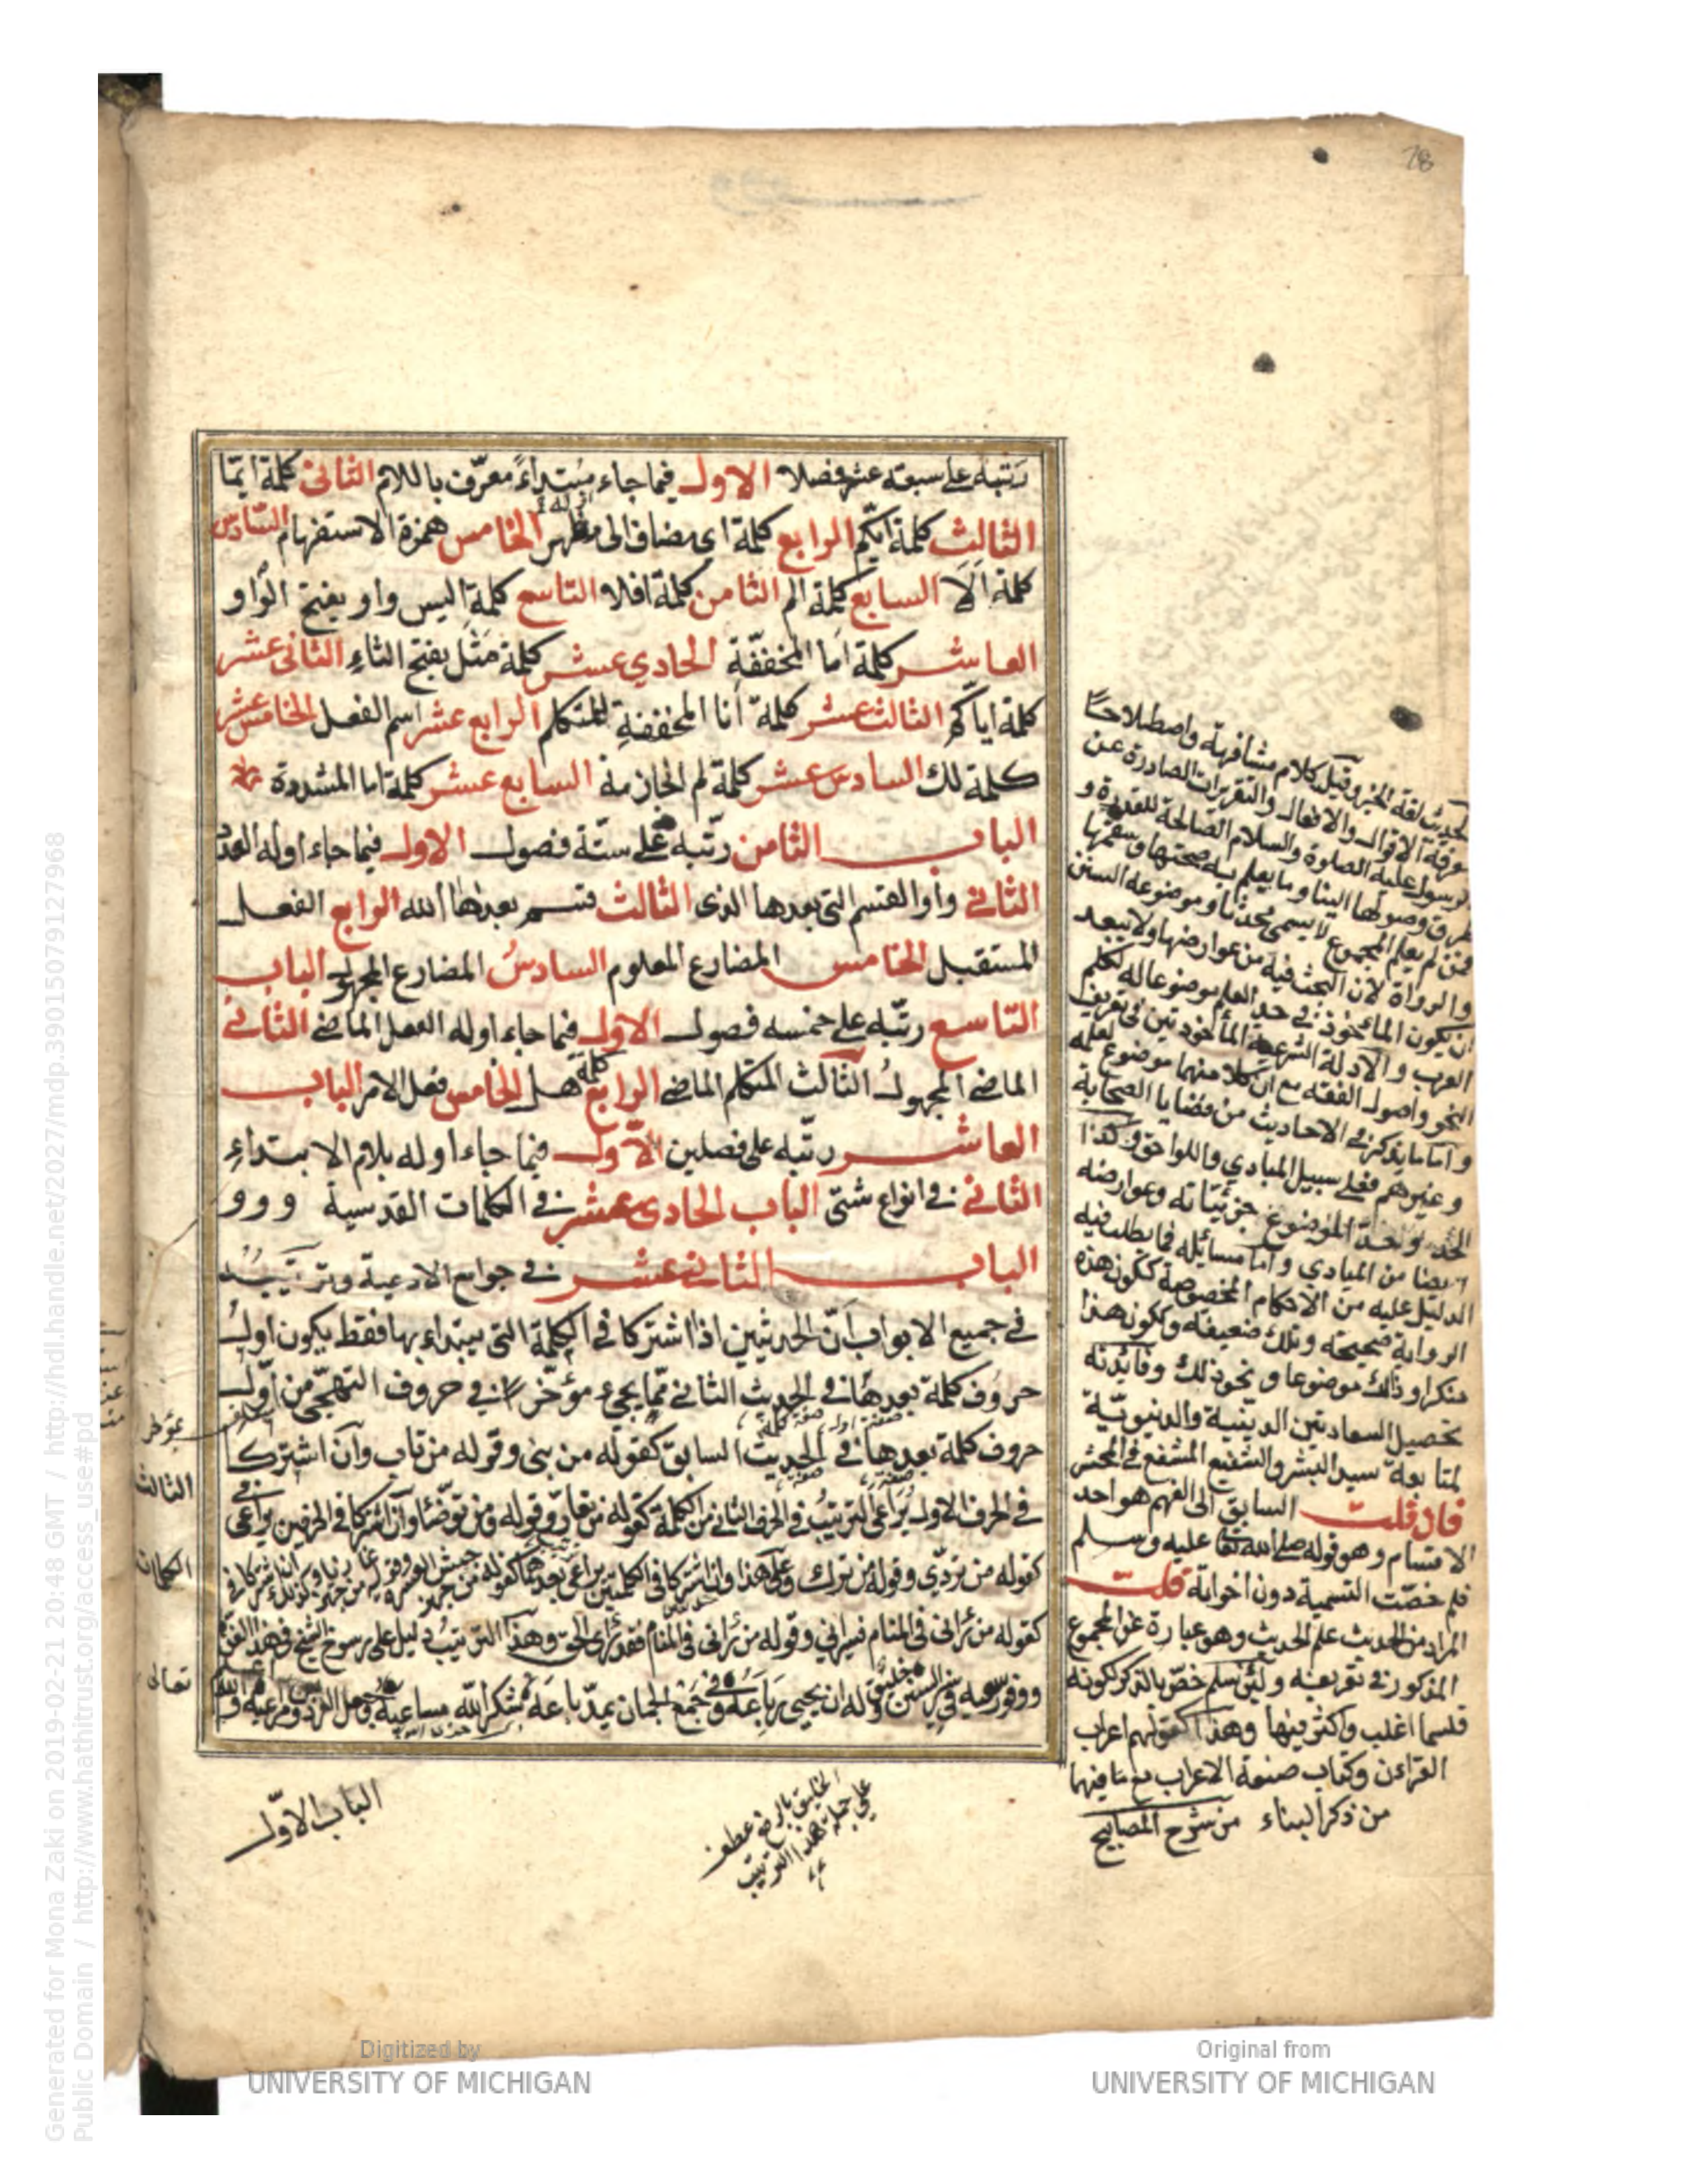 78
رتبه على سبعة عشر فصلا الاول فيما جاء مبتداء معرّف باللام الثاني كلمة ايّما
الثالث كلمة ايّكم الرابع كلمة اي مضاف الى مظهر الخامس همزة الاستفهام السّادس
كلمة ألا السابع كلمة الم الثامن كلمة افلا التاسع كلمة اليس واو بفتح الواو
العاشر كلمة اما المخففّة الحادي عشر كلمة مَثَل بفتح الثاء الثاني عشر
كلمة اياكم الثالث عشر كلمة أنا المخففة للمتكلم الرابع عشر اسم الفعل الخامس عشر
كلمة لك السادس عشر كلمة لم الجازمة السابع عشر كلمة اما المشددة
الباب الثامن رتّبه على ستّة فصول الاول فيما جاء اوله العدد
الثاني واو القسم التي بعدها الذى الثالث قسم بعدها الله الرابع الفعل
المستقبل الخامس المضارع المعلوم السادسُ المضارع المجهول الباب
التاسع رتّبه على خمسه فصول الاول فيما جاء اوله الفعل الماضي الثاني
الماضي المجهول الثالث المتكلم الماضي الرابع كلمة هل الخامس فعل الامر الباب
العاشر رتّبه على فصلين الاول فيما جاء اوله بلام الابتداء
الثاني في انواع شتّى الباب الحادى عشر في الكلمات القدسية
الباب الثاني عشر في جوامع الادعية وترتيبُه
في جميع الابواب أنّ الحديثين اذا اشتركا في الكلمة التي يبتداء بها فقط يكون اول
حروف كلمة بعدها في الحديث الثاني ممّا يجيء مؤخّرا في حروف التهجّي من اول
حروف كلمة بعدها في الحديث السابق كقوله من بنى وقوله من تاب وان اشتركا
في الحرف الاول يُرَاعَى الترتيبُ في الحرف الثاني من الكلمة كقوله من تعارّ وقوله ومن توضّأ وان اشتركا في الحرفين يراعى
كقوله من تردّي وقوله من ترك وعلى هذا وان اشتركا في الكلمتين يراعى بعدهما كقوله من جهز
كقوله من رآنى في المنام فسيراني وقوله من رآنى في المنام فقد رأى الحق وهذا الترتيبُ دليل على رسوخ الشيخ في هذا الفن
الباب الاوّل
الخليق بالرفع عطف
على جملة هذا الترتيب
الحديث لغة الخبر وقيل كلام مشافهة واصطلاحا
معرفة الاقوال والافعال والتقريرات الصادرة عن
الرسول عليه الصلوة والسلام الصالحة للقدرة و
طرق وصولها الينا وما يعلم به صحتها وسقمها
فمن لم يعلم المجموع لا يسمى مُحدثا وموضوعه السنن
والرواة لان البحث فيه من عوارضها ولا يبعد
ان يكون المأخوذ في حد العلم موضوعا له لكلم
العرب والادلة الشرعية المأخوذتين في تعريف
النحو واصول الفقه مع ان كلا منهما موضوع لعلمه
و اما ما يذكر في الاحاديث من قضايا الصحابة
وغيرهم فعلى سبيل المبادي واللواحق وكذا
الحد وحدّ الموضوع جزئيّاته وعوارضه
ايضا من المبادي واما مسائله فما يطلب فيه
الدليل عليه من الاحكام المخصوصة ككون هذه
الرواية صحيحة وتلك ضعيفة وكون هذا
منكرا وذاك موضوعا ونحو ذلك وفائدته
تحصيل السعادتين الدينية والدنيويّة
لمتابعة سيد البشر والشفيع المشفع في المحشر
فان قلت السابق الى الفهم هو احد
الاقسام وهو قوله صلى الله تعا عليه وسلم
فلم خصّت التسمية دون اخواته قلت
المراد من الحديث علم الحديث وهو عبارة عن المجموع
المذكور في تعريفه ولئن سلم خصّ بالذكر لكونه
قسما اغلب واكثر فيها وهذا كقولهم اعراب
القرآن وكتاب صنعة الاعراب مع ما فيهما
من ذكر البناء من شرح المصابيح
Generated for Mona Zaki on 2019-02-21 20:48 GMT / http://hdl.handle.net/2027/mdp.39015079127968
Public Domain / http://www.hathitrust.org/access_use#pd
Digitized by
UNIVERSITY OF MICHIGAN
Original from
UNIVERSITY OF MICHIGAN